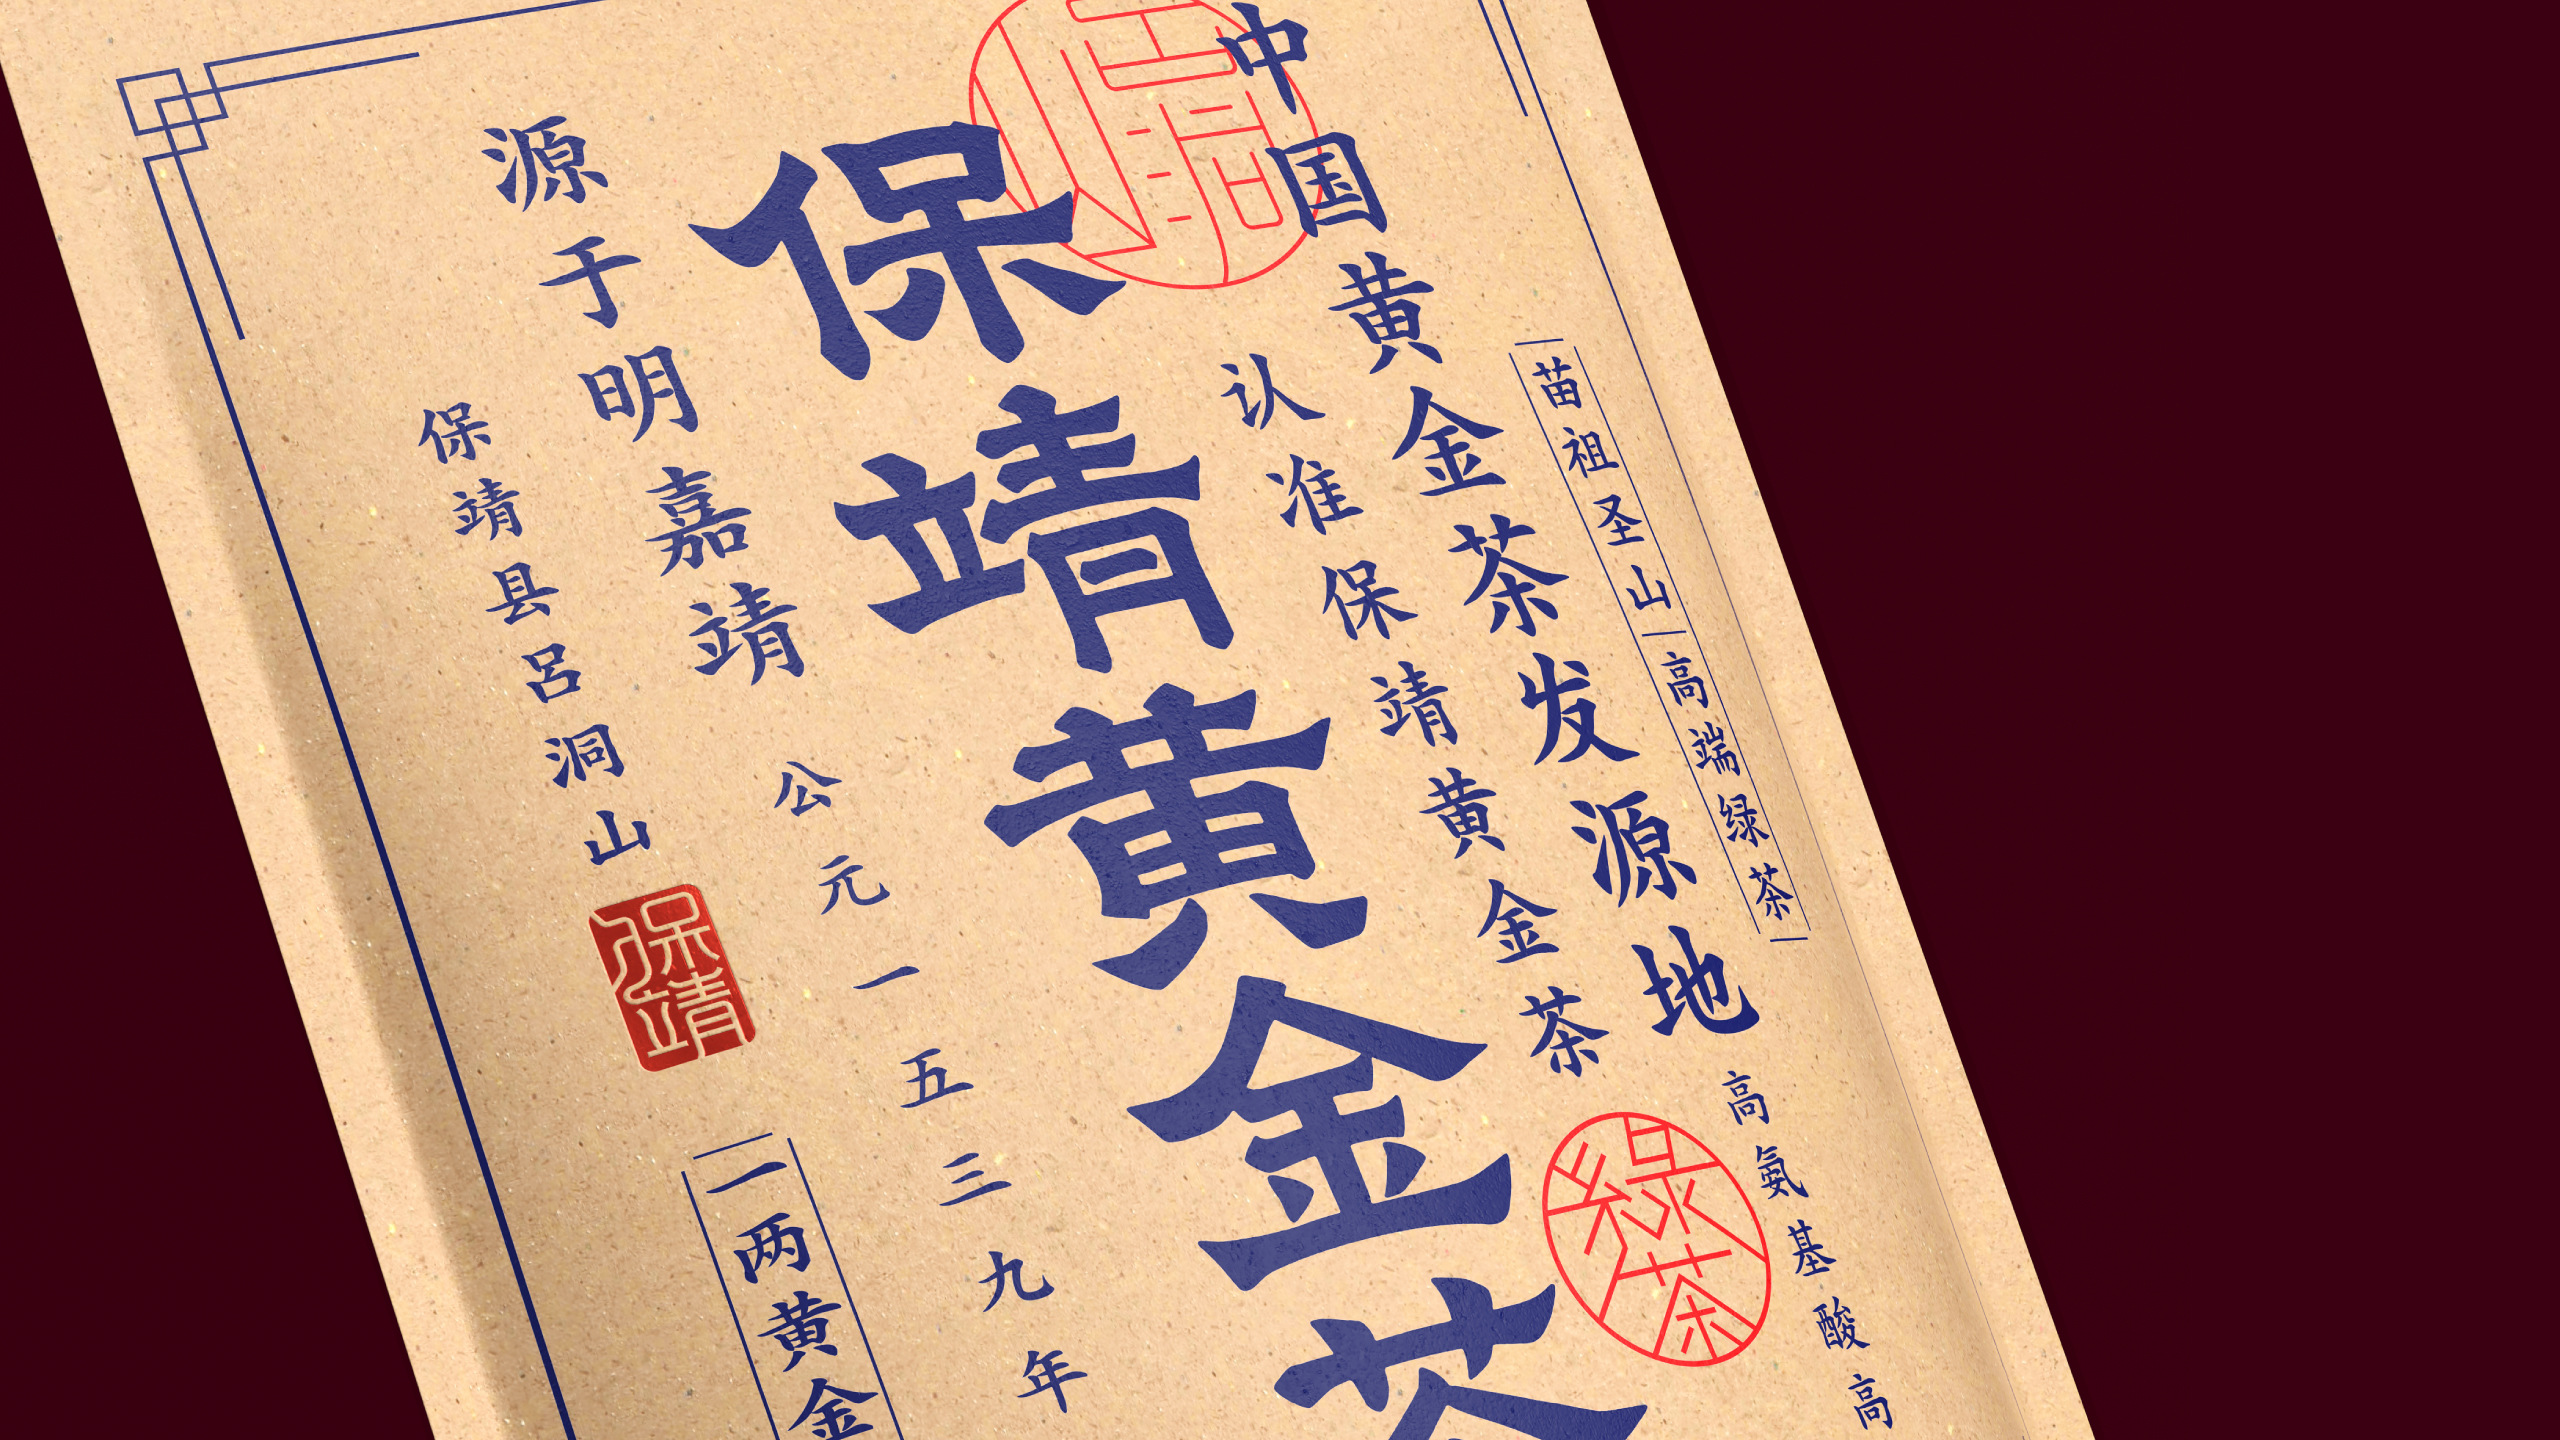 苗祖圣山
高端绿茶
中国黄金茶发源地
高氨基酸高
认准保靖黄金茶
綠茶
保靖黄金茶
源于明嘉靖
公元一五三九年
保靖县吕洞山
保靖
一两黄金